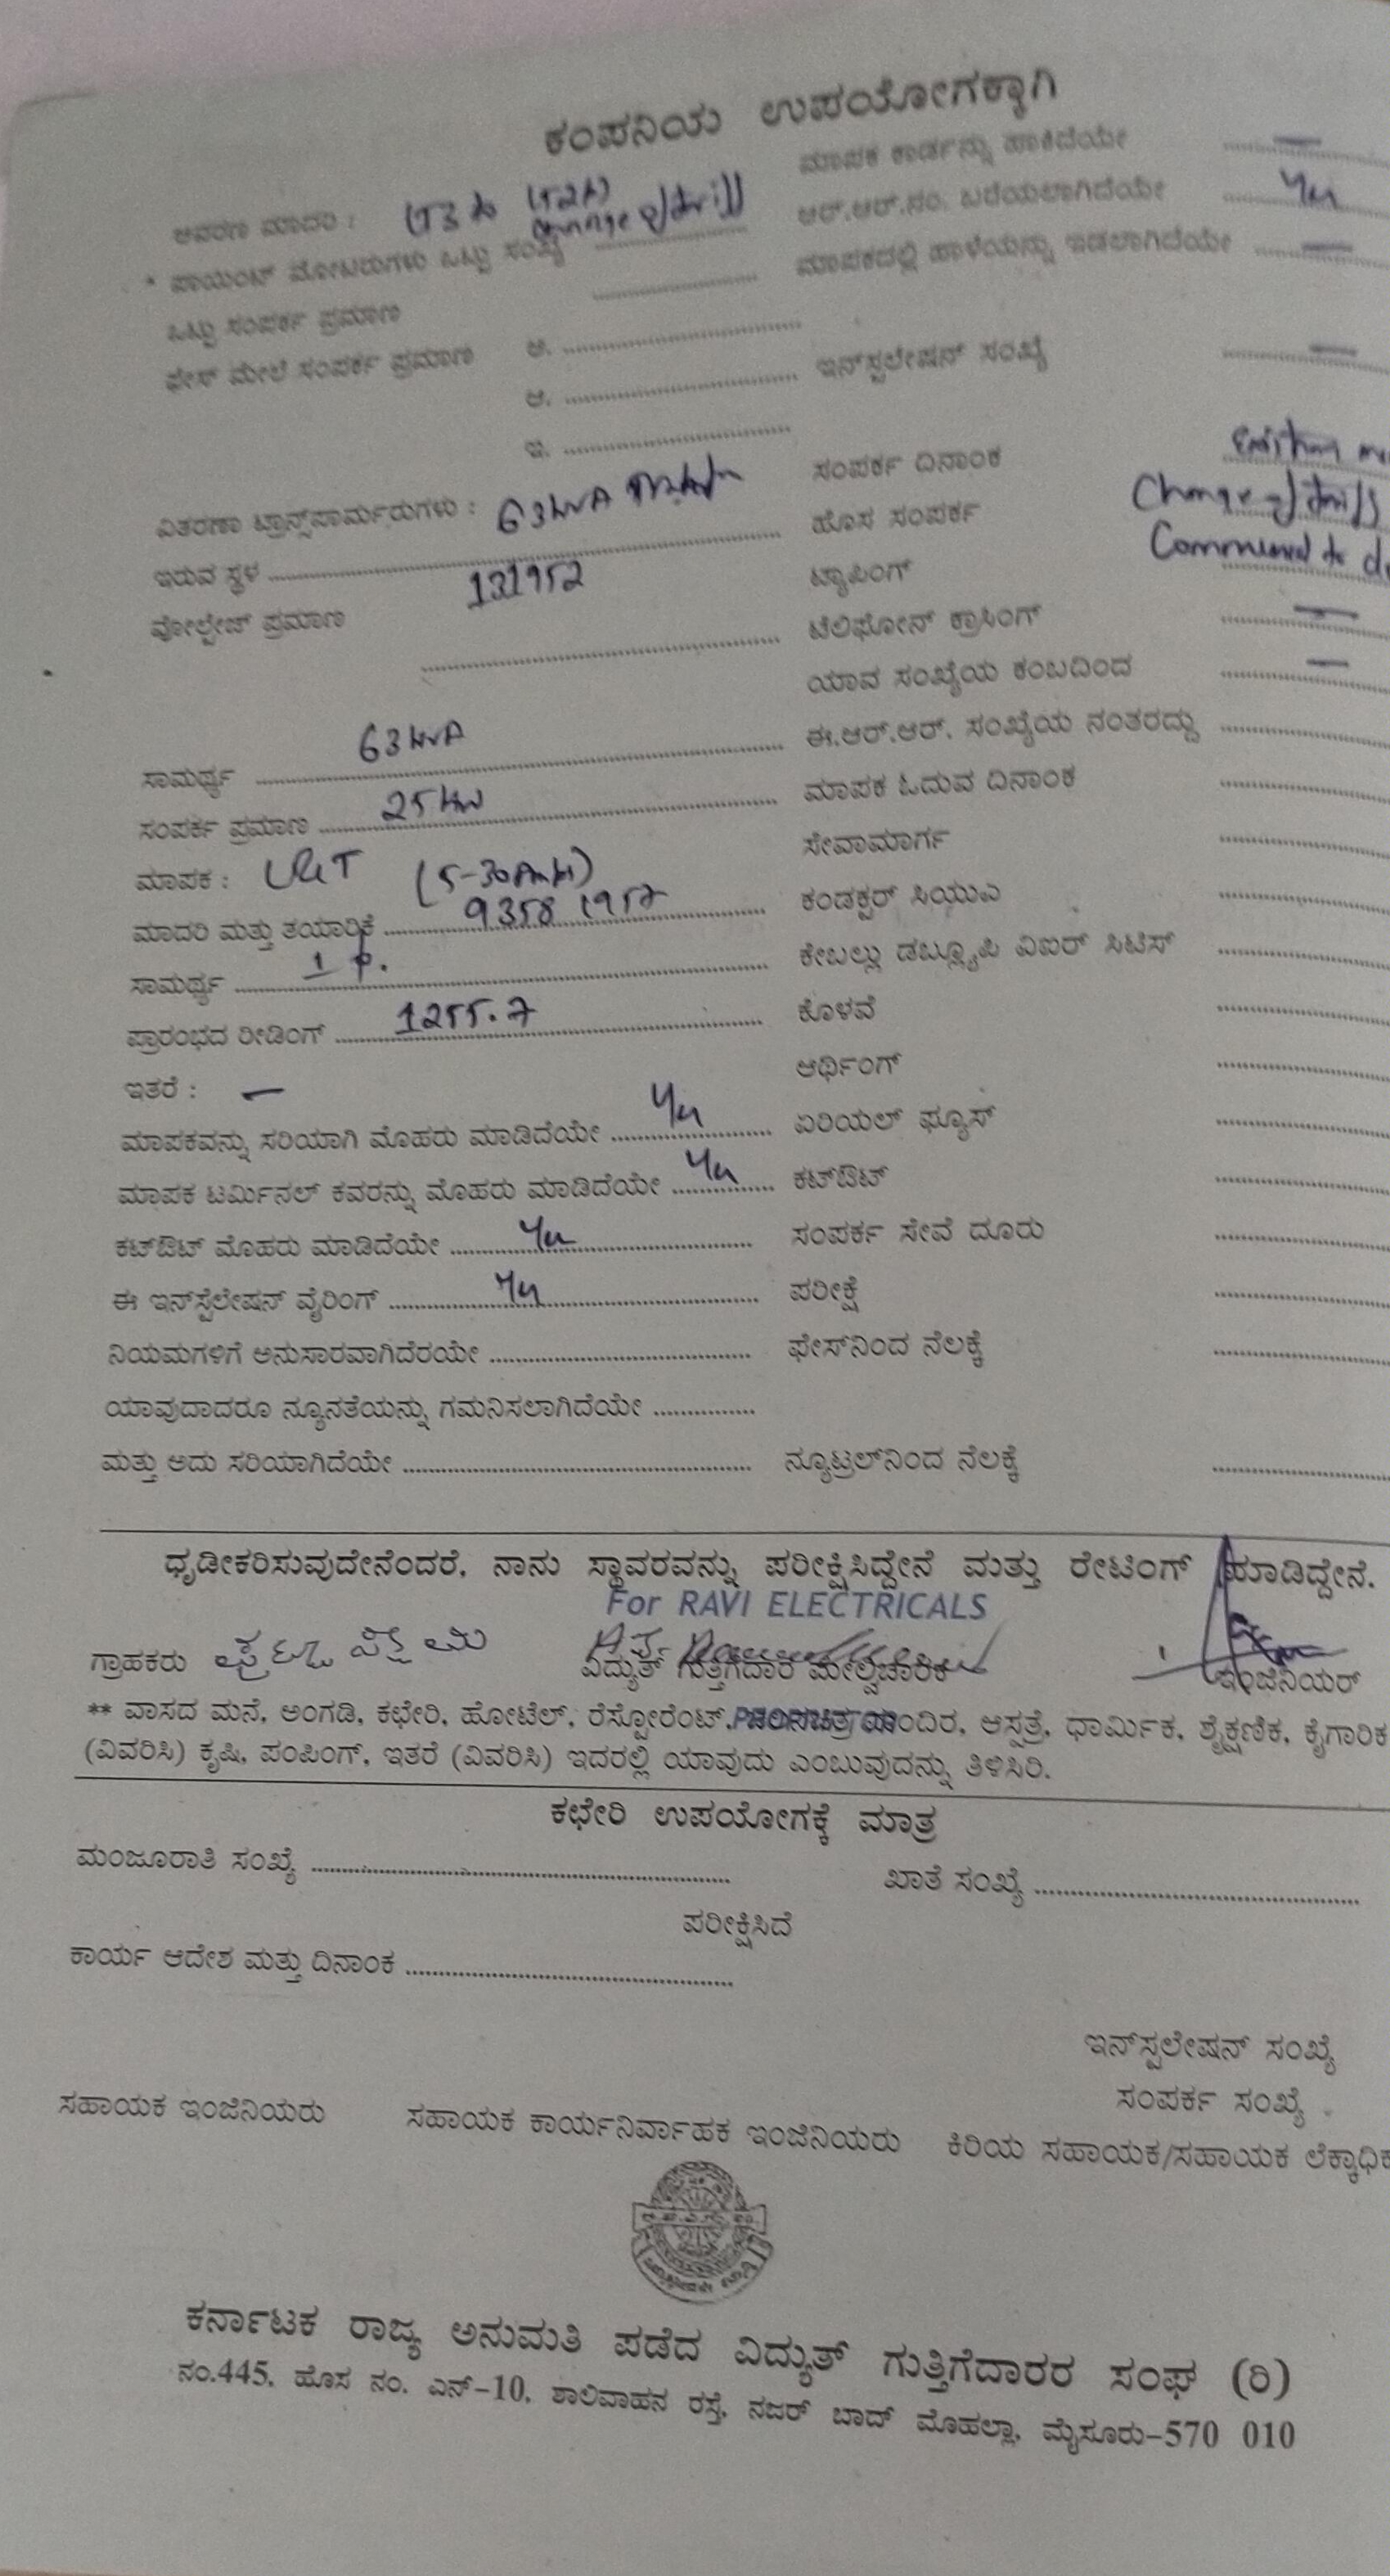 ಕಂಪನಿಯ ಉಪಯೋಗಕ್ಕಾಗಿ
ಆವರಣ ಮಾದರಿ : LT3 to (T2A) change of tariff
* ಪಾಯಿಂಟ್ ಮೋಟರುಗಳು ಒಟ್ಟು ಸಂಖ್ಯೆ ....................
ಒಟ್ಟು ಸಂಪರ್ಕ ಪ್ರಮಾಣ ....................
ಫೇಸ್ ಮೇಲೆ ಸಂಪರ್ಕ ಪ್ರಮಾಣ ಅ. ....................
ಆ. ....................
ಇ. ....................
ವಿತರಣಾ ಟ್ರಾನ್ಸ್‌ಪಾರ್ಮರುಗಳು : 63kVA
ಇರುವ ಸ್ಥಳ ....................
131952
ವೋಲ್ಟೇಜ್ ಪ್ರಮಾಣ ....................
ಸಾಮರ್ಥ್ಯ 63kVA
ಸಂಪರ್ಕ ಪ್ರಮಾಣ 25kW
ಮಾಪಕ : L&T (5-30Amp)
ಮಾದರಿ ಮತ್ತು ತಯಾರಿಕೆ 9358 1957
ಸಾಮರ್ಥ್ಯ 1 p.
ಪ್ರಾರಂಭದ ರೀಡಿಂಗ್ 1255.7
ಇತರೆ : —
ಮಾಪಕವನ್ನು ಸರಿಯಾಗಿ ಮೊಹರು ಮಾಡಿದೆಯೇ Yes
ಮಾಪಕ ಟರ್ಮಿನಲ್ ಕವರನ್ನು ಮೊಹರು ಮಾಡಿದೆಯೇ Yes
ಕಟ್‌ಔಟ್ ಮೊಹರು ಮಾಡಿದೆಯೇ Yes
ಈ ಇನ್‌ಸ್ಟೆಲೇಷನ್ ವೈರಿಂಗ್ Yes
ನಿಯಮಗಳಿಗೆ ಅನುಸಾರವಾಗಿದೆರಯೇ ....................
ಯಾವುದಾದರೂ ನ್ಯೂನತೆಯನ್ನು ಗಮನಿಸಲಾಗಿದೆಯೇ ...............
ಮತ್ತು ಅದು ಸರಿಯಾಗಿದೆಯೇ ....................
ಮಾಪಕ ಕಾರ್ಡನ್ನು ಹಾಕಿದೆಯೇ —
ಆರ್.ಆರ್.ನಂ. ಬರೆಯಲಾಗಿದೆಯೇ Yes
ಮಾಪಕದಲ್ಲಿ ಹಾಳೆಯನ್ನು ಇಡಲಾಗಿದೆಯೇ —
ಇನ್‌ಸ್ಟಲೇಷನ್ ಸಂಖ್ಯೆ —
ಸಂಪರ್ಕ ದಿನಾಂಕ Existing
ಹೊಸ ಸಂಪರ್ಕ Change of tariff
ಟ್ಯಾಪಿಂಗ್
ಟೆಲಿಫೋನ್ ಕ್ರಾಸಿಂಗ್ —
ಯಾವ ಸಂಖ್ಯೆಯ ಕಂಬದಿಂದ —
ಈ.ಆರ್.ಆರ್. ಸಂಖ್ಯೆಯ ನಂತರದ್ದು ....................
ಮಾಪಕ ಓದುವ ದಿನಾಂಕ ....................
ಸೇವಾಮಾರ್ಗ ....................
ಕಂಡಕ್ಟರ್ ಸಿಯುಎ ....................
ಕೇಬಲ್ಲು ಡಬ್ಲ್ಯೂಪಿ ವಿಐರ್ ಸಿಟಿಸ್ ....................
ಕೊಳವೆ ....................
ಆರ್ಥಿಂಗ್ ....................
ಏರಿಯಲ್ ಫ್ಯೂಸ್ ....................
ಕಟ್‌ಔಟ್ ....................
ಸಂಪರ್ಕ ಸೇವೆ ದೂರು ....................
ಪರೀಕ್ಷೆ ....................
ಫೇಸ್‌ನಿಂದ ನೆಲಕ್ಕೆ ....................
ನ್ಯೂಟ್ರಲ್‌ನಿಂದ ನೆಲಕ್ಕೆ ....................
ಧೃಡೀಕರಿಸುವುದೇನೆಂದರೆ, ನಾನು ಸ್ಥಾವರವನ್ನು ಪರೀಕ್ಷಿಸಿದ್ದೇನೆ ಮತ್ತು ರೇಟಿಂಗ್ ಮಾಡಿದ್ದೇನೆ.
For RAVI ELECTRICALS
ಗ್ರಾಹಕರು ವಿದ್ಯುತ್ ಗುತ್ತಿಗೆದಾರ ಮೇಲ್ವಿಚಾರಿಕ ಇಂಜಿನಿಯರ್
** ವಾಸದ ಮನೆ, ಅಂಗಡಿ, ಕಛೇರಿ, ಹೋಟೆಲ್, ರೆಸ್ಟೋರೆಂಟ್, ಚಲನಚಿತ್ರ ಮಂದಿರ, ಆಸ್ಪತ್ರೆ, ಧಾರ್ಮಿಕ, ಶೈಕ್ಷಣಿಕ, ಕೈಗಾರಿಕ
(ವಿವರಿಸಿ) ಕೃಷಿ, ಪಂಪಿಂಗ್, ಇತರೆ (ವಿವರಿಸಿ) ಇದರಲ್ಲಿ ಯಾವುದು ಎಂಬುವುದನ್ನು ತಿಳಿಸಿರಿ.
ಕಛೇರಿ ಉಪಯೋಗಕ್ಕೆ ಮಾತ್ರ
ಮಂಜೂರಾತಿ ಸಂಖ್ಯೆ .................... ಖಾತೆ ಸಂಖ್ಯೆ ....................
ಪರೀಕ್ಷಿಸಿದೆ
ಕಾರ್ಯ ಆದೇಶ ಮತ್ತು ದಿನಾಂಕ ....................
ಇನ್‌ಸ್ಟಲೇಷನ್ ಸಂಖ್ಯೆ
ಸಂಪರ್ಕ ಸಂಖ್ಯೆ
ಸಹಾಯಕ ಇಂಜಿನಿಯರು ಸಹಾಯಕ ಕಾರ್ಯನಿರ್ವಾಹಕ ಇಂಜಿನಿಯರು ಕಿರಿಯ ಸಹಾಯಕ/ಸಹಾಯಕ ಲೆಕ್ಕಾಧಿಕ
ಕರ್ನಾಟಕ ರಾಜ್ಯ ಅನುಮತಿ ಪಡೆದ ವಿದ್ಯುತ್ ಗುತ್ತಿಗೆದಾರರ ಸಂಘ (ರಿ)
ನಂ.445, ಹೊಸ ನಂ. ಎನ್-10, ಶಾಲಿವಾಹನ ರಸ್ತೆ, ನಜರ್ ಬಾದ್ ಮೊಹಲ್ಲಾ, ಮೈಸೂರು-570 010